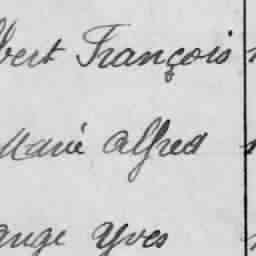 bert François
Marie Alfred
ange Yves